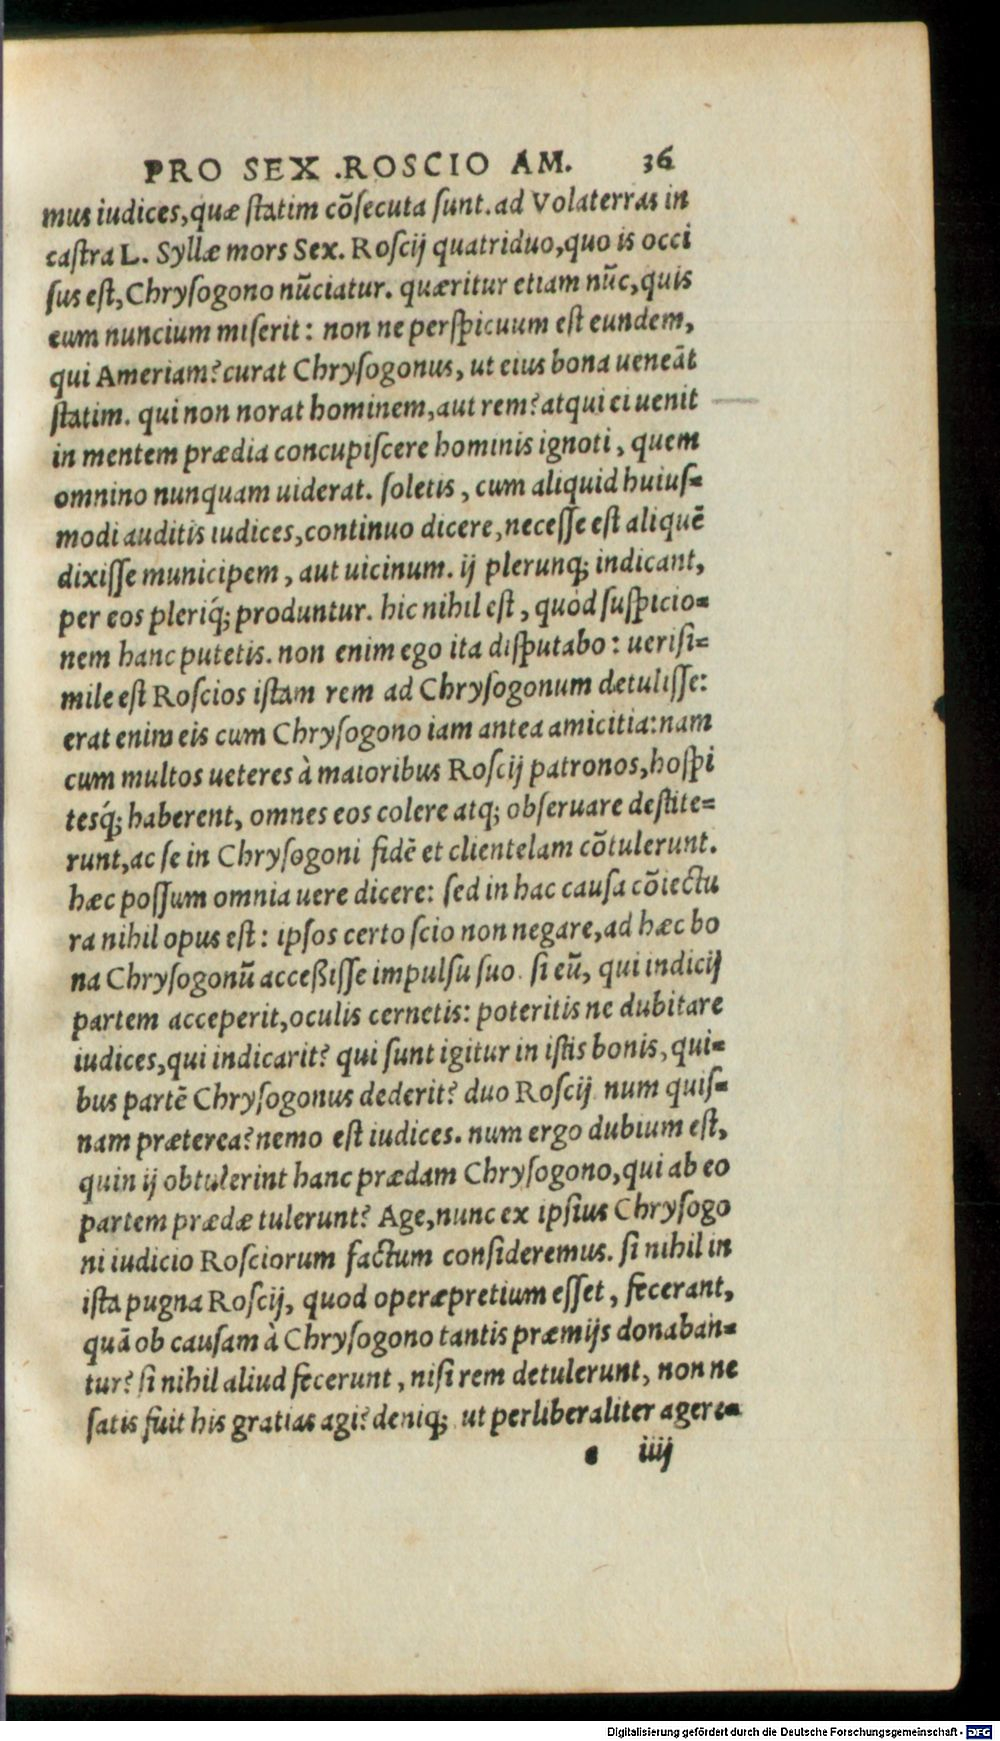 PRO SEX .ROSCIO AM. 36
mus iudices,quæ ſtatim cõſecuta ſunt.ad Volaterras in
caſtra L. Syllæ mors Sex. Roſcij quatriduo,quo is occi
ſus eſt,Chryſogono nũciatur. quæritur etiam nũc,quis
eum nuncium miſerit: non ne perſpicuum eſt eundem,
qui Ameriam?curat Chryſogonus, ut eius bona ueneãt
ſtatim. qui non norat hominem,aut rem?atqui ei uenit
in mentem prædia concupiſcere hominis ignoti, quem
omnino nunquam uiderat. ſoletis, cum aliquid huiuſ=
modi auditis iudices,continuo dicere,neceſſe eſt aliquẽ
dixiſſe municipem, aut uicinum. ij plerunq; indicant,
per eos pleriq́; produntur. hic nihil eſt, quòd ſuſpicio=
nem hanc putetis. non enim ego ita diſputabo: ueriſi=
mile eſt Roſcios iſtam rem ad Chryſogonum detuliſſe:
erat enim eis cum Chryſogono iam antea amicitia:nam
cum multos ueteres à maioribus Roſcij patronos,hoſpi
tesq́; haberent, omnes eos colere atq; obſeruare deſtite=
runt,ac ſe in Chryſogoni fidẽ et clientelam cõtulerunt.
hæc poſſum omnia uere dicere: ſed in hac cauſa cõiectu
ra nihil opus eſt: ipſos certo ſcio non negare,ad hæc bo
na Chryſogonũ acceßiſſe impulſu ſuo. ſi eũ, qui indicij
partem acceperit,oculis cernetis: poteritis ne dubitare
iudices,qui indicarit? qui ſunt igitur in iſtis bonis, qui=
bus partẽ Chryſogonus dederit? duo Roſcij. num quiſ=
nam præterea?nemo eſt iudices. num ergo dubium eſt,
quin ij obtulerint hanc prædam Chryſogono,qui ab eo
partem prædæ tulerunt? Age,nunc ex ipſius Chryſogo
ni iudicio Roſciorum factum conſideremus. ſi nihil in
iſta pugna Roſcij, quod operæpretium eſſet, fecerant,
quã ob cauſam à Chryſogono tantis præmijs donaban=
tur? ſi nihil aliud fecerunt, niſi rem detulerunt, non ne
ſatis fuit his gratias agi?deniq; ut perliberaliter agere=
e iiij
Digitalisierung gefördert durch die Deutsche Forschungsgemeinschaft - DFG